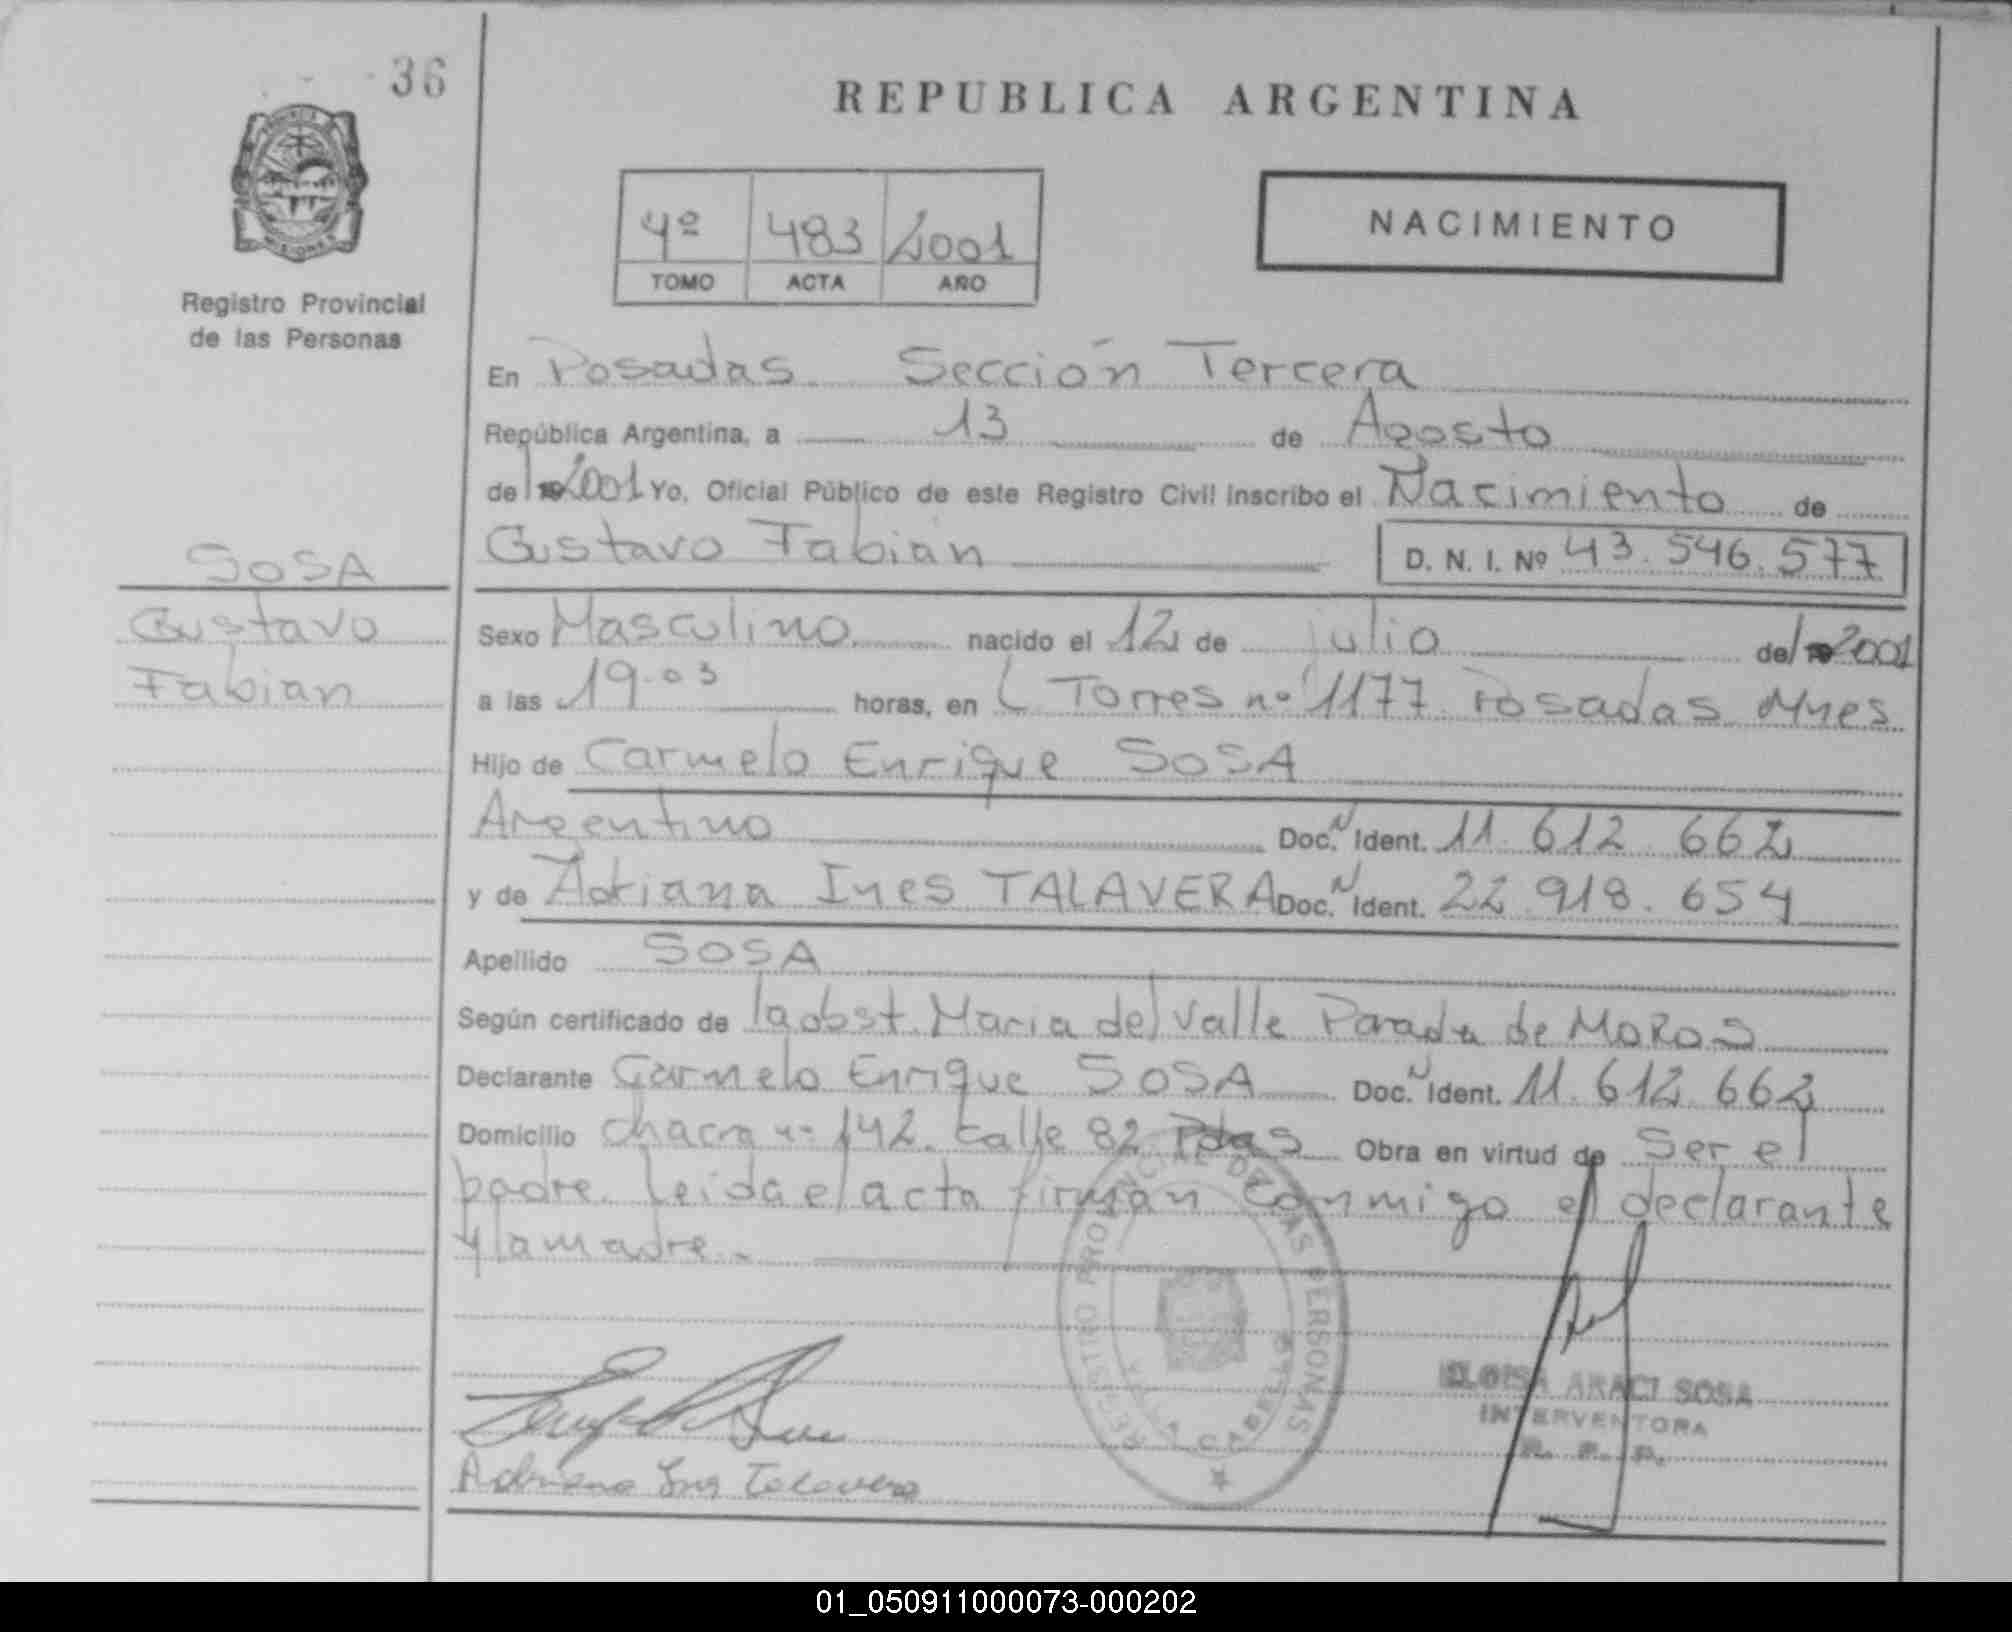 36
REPUBLICA ARGENTINA
PROVINCIA DE
MISIONES
Registro Provincial
de las Personas
4º 483 2001
TOMO ACTA AÑO
NACIMIENTO
En Posadas Sección Tercera
República Argentina, a 13 de Agosto
de 19 2001 Yo, Oficial Público de este Registro Civil inscribo el Nacimiento de
Gustavo Fabian D. N. I. Nº 43.546.577
SOSA
Gustavo
Fabian
Sexo Masculino nacido el 12 de julio de 19 2001
a las 19.03 horas, en C Torres nº 1177 Posadas Mnes
Hijo de Carmelo Enrique SOSA
Argentino Doc. N Ident. 11.612.662
y de Adriana Ines TALAVERA Doc. N Ident. 22.918.654
Apellido SOSA
Según certificado de la obst. Maria del Valle Parada de MOROS
Declarante Carmelo Enrique SOSA Doc. N Ident. 11.612.662
Domicilio chacra nº 142 calle 82 Pdas Obra en virtud de Ser el
padre. Leida el acta firman conmigo el declarante
y la madre.-
REGISTRO PROVINCIAL DE LAS PERSONAS
ELOISA ARACI SOSA
INTERVENTORA
R. P. P.
Adriana Ines Talavera
01_050911000073-000202